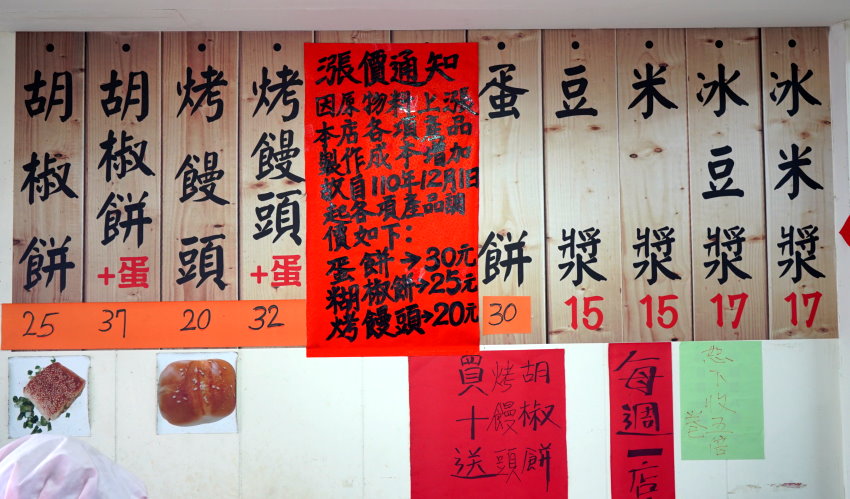 胡椒餅
25
胡椒餅+蛋
37
烤饅頭
20
烤饅頭+蛋
32
漲價通知
因原物料上漲
本店各項產品
製作成本增加
故自110年12月1日
起各項產品調
價如下：
蛋餅→30元
糊椒餅→25元
烤饅頭→20元
蛋餅
30
豆漿
15
米漿
15
冰豆漿
17
冰米漿
17
胡椒餅
烤饅頭
買十送
每週一店
恕不收五倍
卷